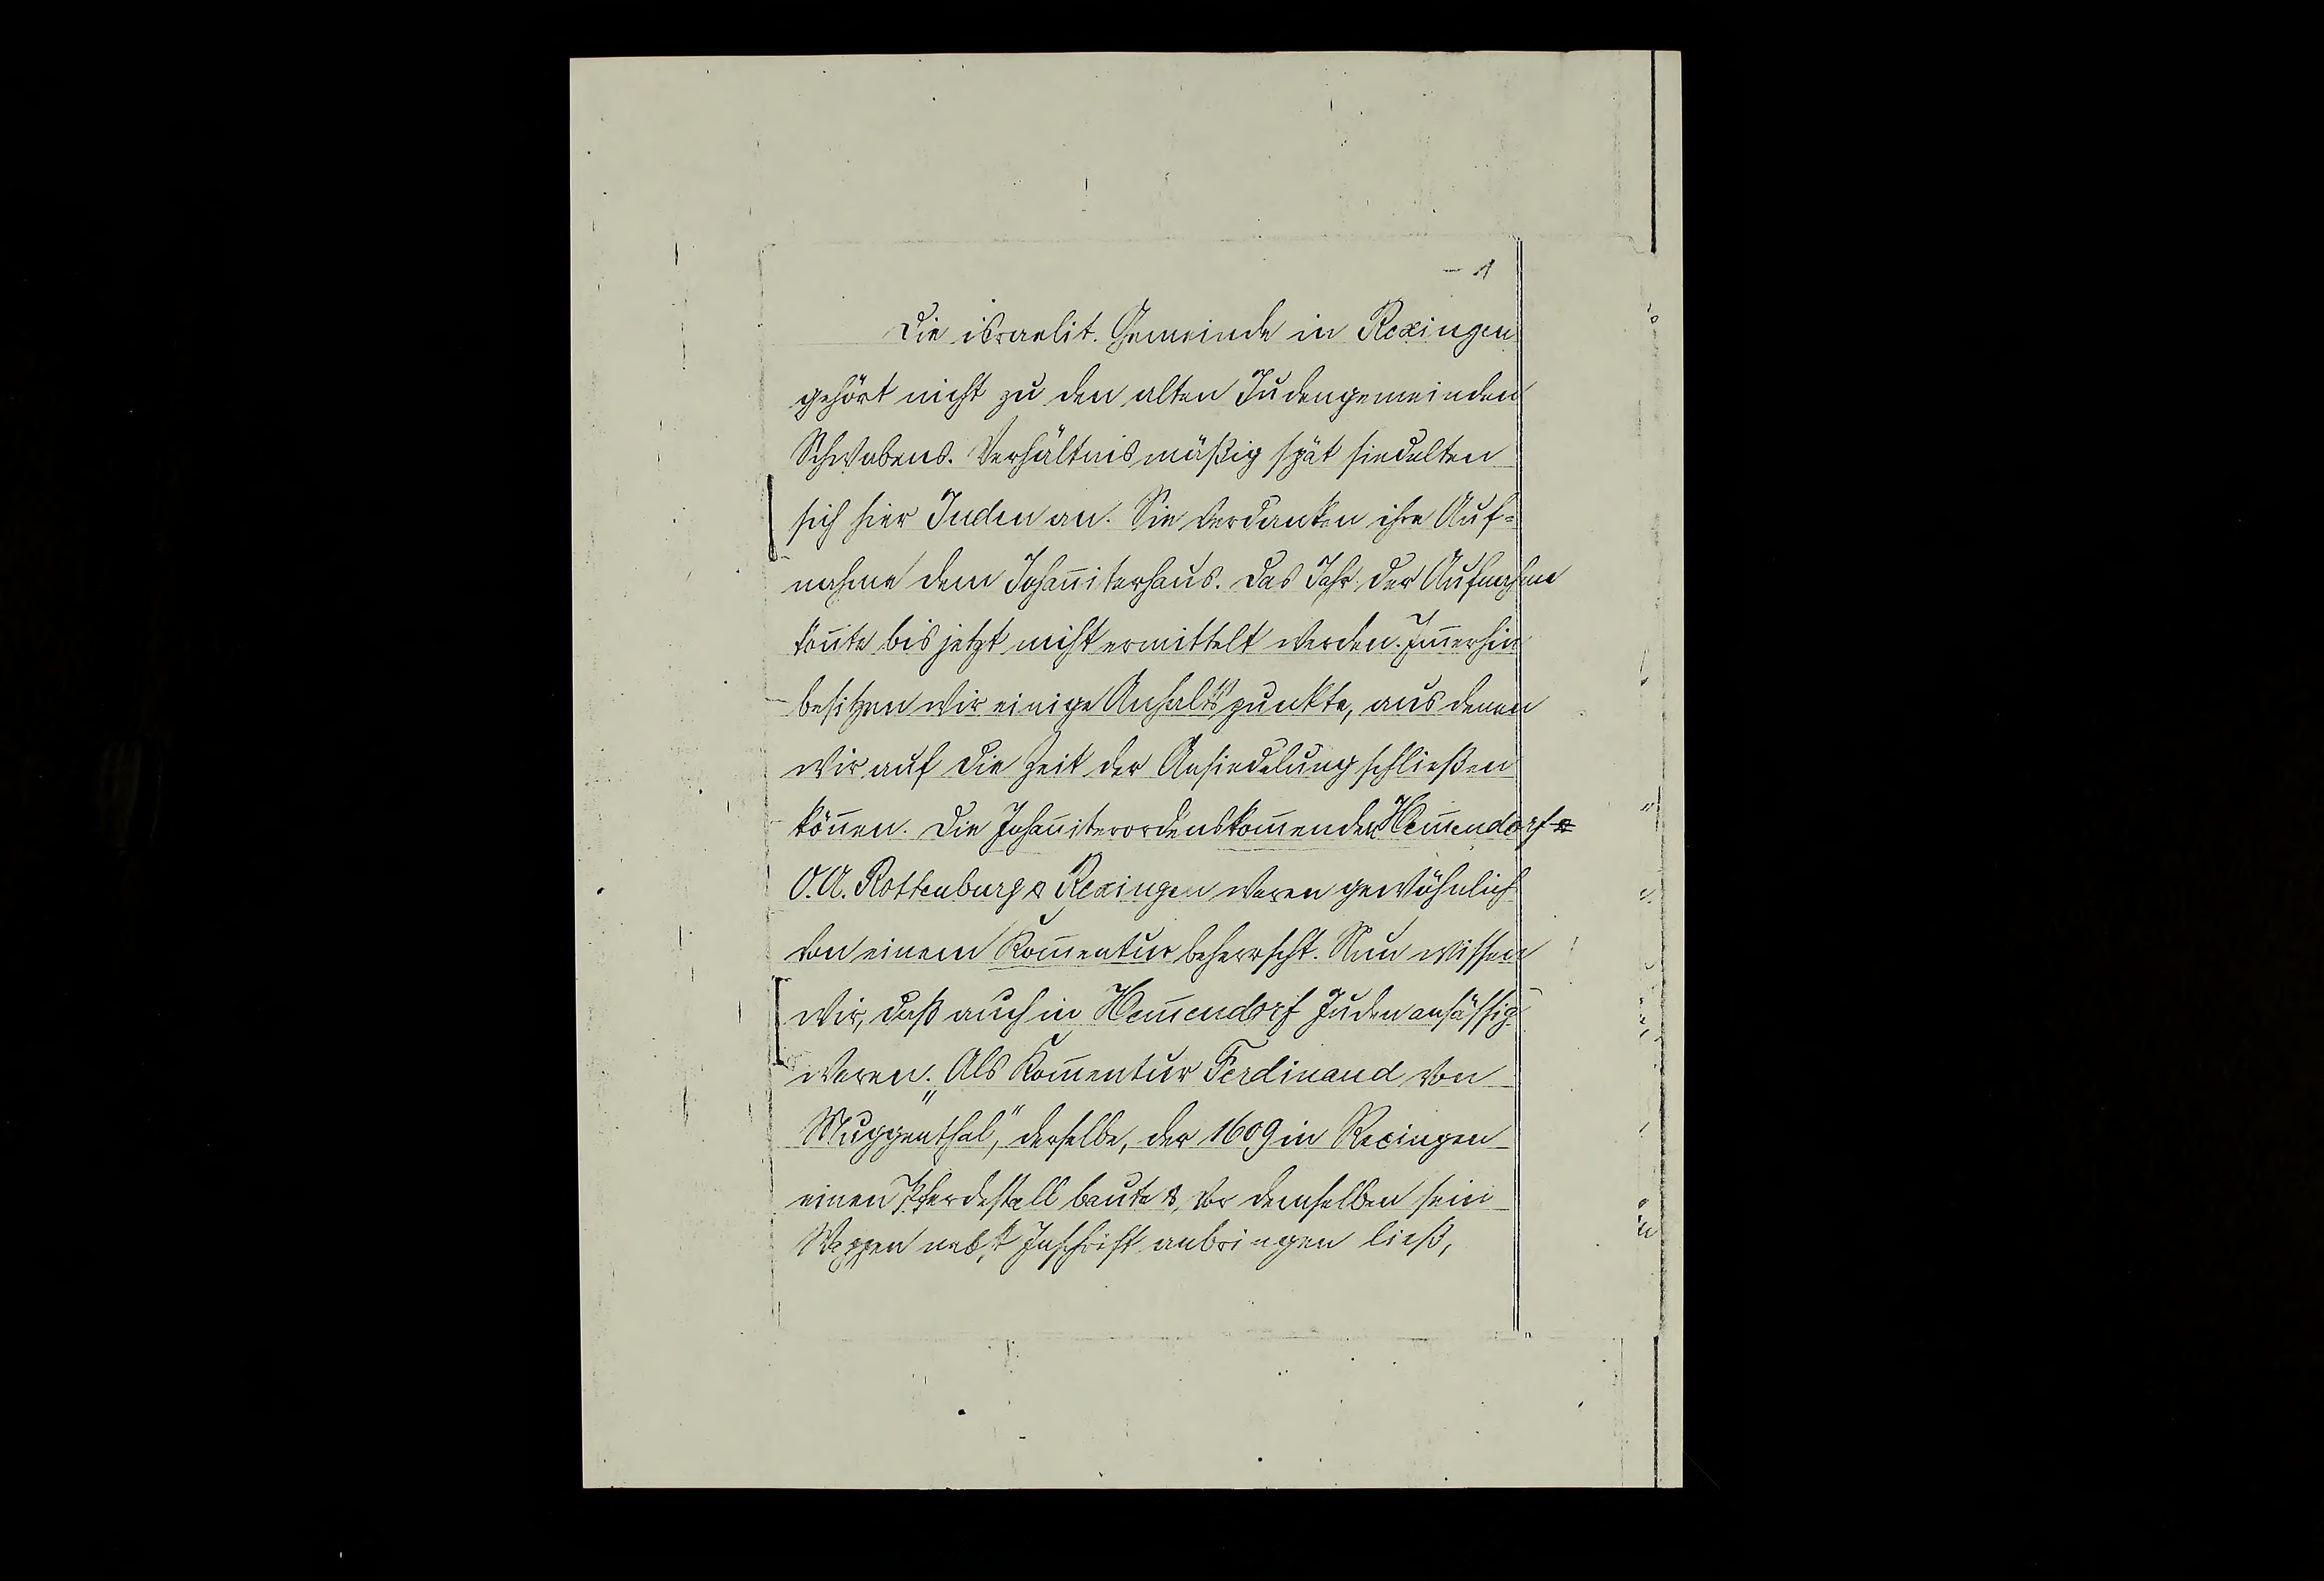 - 1
Die israelit. Gemeinde in Rexingen
gehört nicht zu den alten Judengemeinden
Schwabens. Verhältnismäßig spät siedelten
sich hier Juden an. Sie verdanken ihre Auf=
nahme dem Johan̄iterhaus. Das Jahr der Aufnahme
kon̄te bis jetzt nicht ermittelt werden. Im̄erhin
besitzen wir einige Anhaltspunkte, aus denen
wir auf die Zeit der Ansiedelung schließen
kön̄en. Die Johan̄iterordenskom̄enden Hem̄endorf
O.A. Rottenburg & Rexingen waren gewöhnlich
von einem Kom̄entur beherrscht. Nun wissen
wir, daß auch in Hem̄endorf Juden ansässig
waren. Als Kom̄entur Ferdinand von
„Muggenthal“, derselbe, der 1609 in Rexingen
einen Pferdestall baute & vor demselben sein
Wappen nebst Inschrift anbringen ließ,